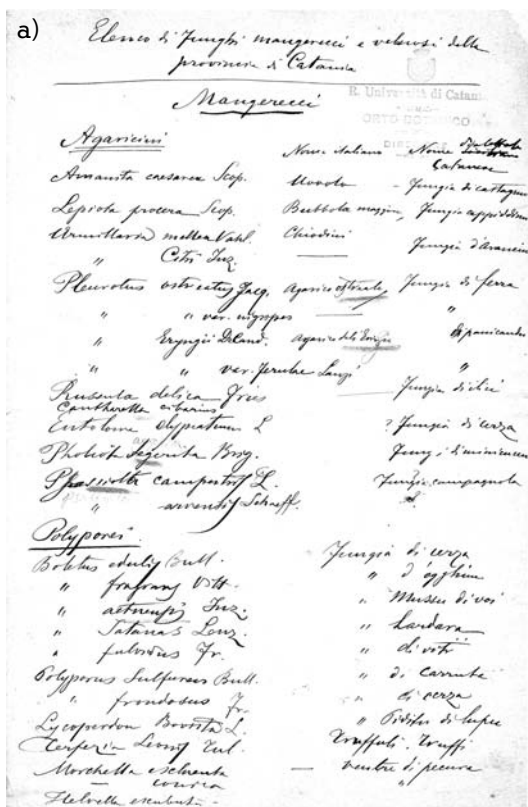 a)
Elenco di Funghi mangerecci e velenosi della
provincia di Catania
R. Università di Catania
ORTO BOTANICO
Mangerecci
Agaricini Nome italiano Nome dialettale
Catanese
Amanita caesarea Scop. Uovolo - Fungia di
Lepiota procera Scop. Bubbola maggior, Fungia
Armillaria mellea Vahl. Chiodini
" Citri Inz. Fungia d'Aranciu
Pleurotus ostreatus Jacq. Agarico ostreato Fungia di ferra
" " var. nigripes "
" Eryngii DeCand. Agarico dell'Eringio di panicaudu
" " var. Ferulae Lanzi "
Russula delica Fries Fungia di elici
Cantharella cibarius
Entoloma clypeatum L ? Fungia di cerza
Pholiota Aegerita Brig. Fungi di
campestris L. Fungia campagnola
" arvensis Schaeff.
Polyporei
Boletus edulis Bull. Fungia di cerza
" fragrans Vitt. "
" aetnensis Inz. " Mussu di voi
" Satanas Lenz. " Lardara
" fulvidus Fr. " di viti
Polyporus Sulfureus Bull. " di carrubi
" frondosus Fr. " di cerza
Lycoperdon Bovista L. " Piditu di lupu
Terfezia Leonis Tul. Truffuli. Truffi
Morchella esculenta — ventre di pecura
" conica "
Helvella esculenta